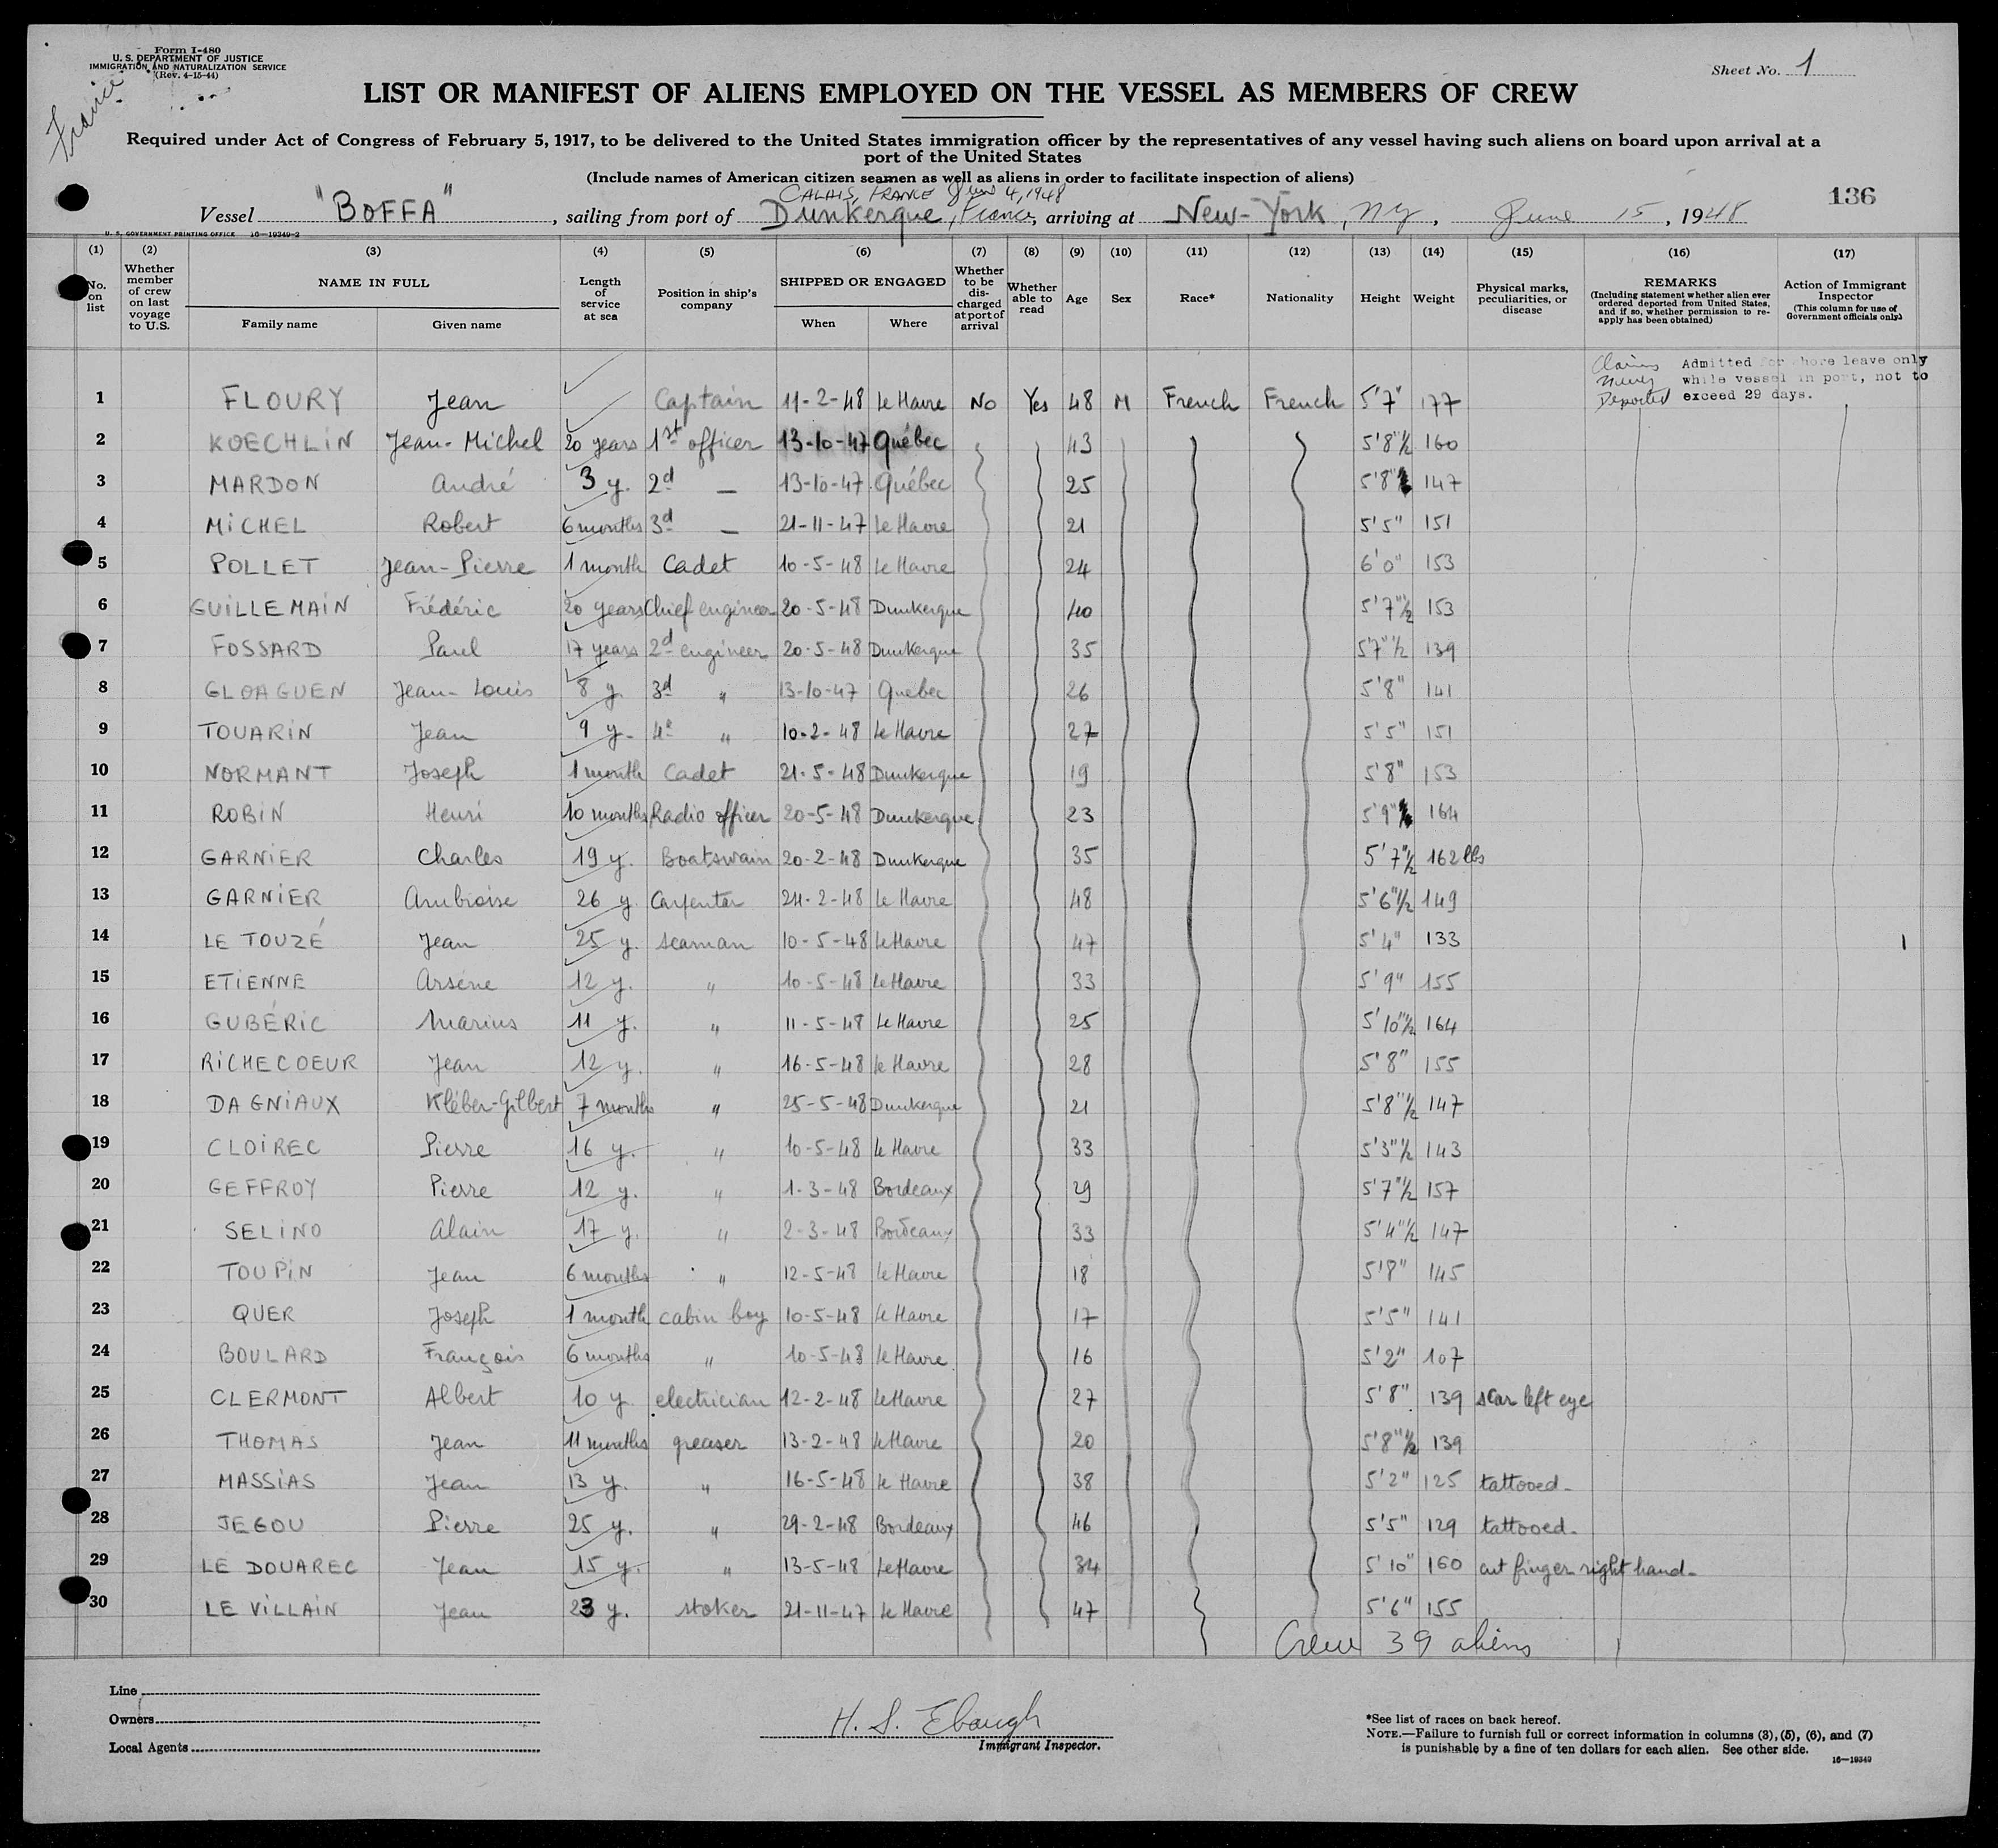 Form I-480
U. S. DEPARTMENT OF JUSTICE
IMMIGRATION AND NATURALIZATION SERVICE
(Rev. 4-15-44)
France
Sheet No. 1
LIST OR MANIFEST OF ALIENS EMPLOYED ON THE VESSEL AS MEMBERS OF CREW
Required under Act of Congress of February 5, 1917, to be delivered to the United States immigration officer by the representatives of any vessel having such aliens on board upon arrival at a
port of the United States
(Include names of American citizen seamen as well as aliens in order to facilitate inspection of aliens)
CALAIS, FRANCE June 4, 1948
136
Vessel "BOFFA", sailing from port of Dunkerque, France, arriving at New-York, NY, June 15, 1948
U. S. GOVERNMENT PRINTING OFFICE 16—19349-2
(1) (2) (3) (4) (5) (6) (7) (8) (9) (10) (11) (12) (13) (14) (15) (16) (17)
No. on list
Whether member of crew on last voyage to U.S.
NAME IN FULL
Family name
Given name
Length of service at sea
Position in ship's company
SHIPPED OR ENGAGED
When
Where
Whether to be discharged at port of arrival
Whether able to read
Age
Sex
Race*
Nationality
Height
Weight
Physical marks, peculiarities, or disease
REMARKS
(Including statement whether alien ever ordered deported from United States, and if so, whether permission to re-apply has been obtained)
Action of Immigrant Inspector
(This column for use of Government officials only)
Claims Never Deported
Admitted for shore leave only
while vessel in port, not to
exceed 29 days.
1 FLOURY Jean Captain 11-2-48 Le Havre No Yes 48 M French French 5'7" 177
2 KOECHLIN Jean-Michel 20 years 1st officer 13-10-47 Québec 43 5'8"½ 160
3 MARDON André 3 y. 2d — 13-10-47 Québec 25 5'8" 147
4 MICHEL Robert 6 months 3d — 21-11-47 Le Havre 21 5'5" 151
5 POLLET Jean-Pierre 1 month Cadet 10-5-48 Le Havre 24 6'0" 153
6 GUILLEMAIN Frédéric 20 years Chief engineer 20-5-48 Dunkerque 40 5'7"½ 153
7 FOSSARD Paul 17 years 2d engineer 20-5-48 Dunkerque 35 5'7"½ 139
8 GLOAGUEN Jean-Louis 8 y. 3d " 13-10-47 Quebec 26 5'8" 141
9 TOUARIN Jean 9 y. 4d " 10-2-48 Le Havre 27 5'5" 151
10 NORMANT Joseph 1 month Cadet 21-5-48 Dunkerque 19 5'8" 153
11 ROBIN Henri 10 months Radio officer 20-5-48 Dunkerque 23 5'9" 164
12 GARNIER Charles 19 y. Boatswain 20-2-48 Dunkerque 35 5'7"½ 162 lbs
13 GARNIER Ambroise 26 y. Carpenter 24-2-48 Le Havre 48 5'6"½ 149
14 LE TOUZÉ Jean 25 y. seaman 10-5-48 Le Havre 47 5'4" 133
15 ETIENNE Arsène 12 y. " 10-5-48 Le Havre 33 5'9" 155
16 GUBÉRIC Marius 11 y. " 11-5-48 Le Havre 25 5'10"½ 164
17 RICHECOEUR Jean 12 y. " 16-5-48 Le Havre 28 5'8" 155
18 DAGNIAUX Kléber-Gilbert 7 months " 25-5-48 Dunkerque 21 5'8"½ 147
19 CLOIREC Pierre 16 y. " 10-5-48 Le Havre 33 5'3"½ 143
20 GEFFROY Pierre 12 y. " 1-3-48 Bordeaux 29 5'7"½ 157
21 SELINO Alain 17 y. " 2-3-48 Bordeaux 33 5'4"½ 147
22 TOUPIN Jean 6 months " 12-5-48 Le Havre 18 5'8" 145
23 QUER Joseph 1 month cabin boy 10-5-48 Le Havre 17 5'5" 141
24 BOULARD François 6 months " 10-5-48 Le Havre 16 5'2" 107
25 CLERMONT Albert 10 y. electrician 12-2-48 Le Havre 27 5'8" 139 scar left eye
26 THOMAS Jean 11 months greaser 13-2-48 Le Havre 20 5'8"½ 139
27 MASSIAS Jean 13 y. " 16-5-48 Le Havre 38 5'2" 125 tattooed-
28 JEGOU Pierre 25 y. " 29-2-48 Bordeaux 46 5'5" 129 tattooed-
29 LE DOUAREC Jean 15 y. " 13-5-48 Le Havre 34 5'10" 160 cut finger right hand-
30 LE VILLAIN Jean 23 y. stoker 21-11-47 Le Havre 47 5'6" 155
Crew 39 aliens
Line
Owners
Local Agents
H. S. Ebaugh
Immigrant Inspector.
*See list of races on back hereof.
NOTE.—Failure to furnish full or correct information in columns (3), (5), (6), and (7)
is punishable by a fine of ten dollars for each alien. See other side.
16—19349